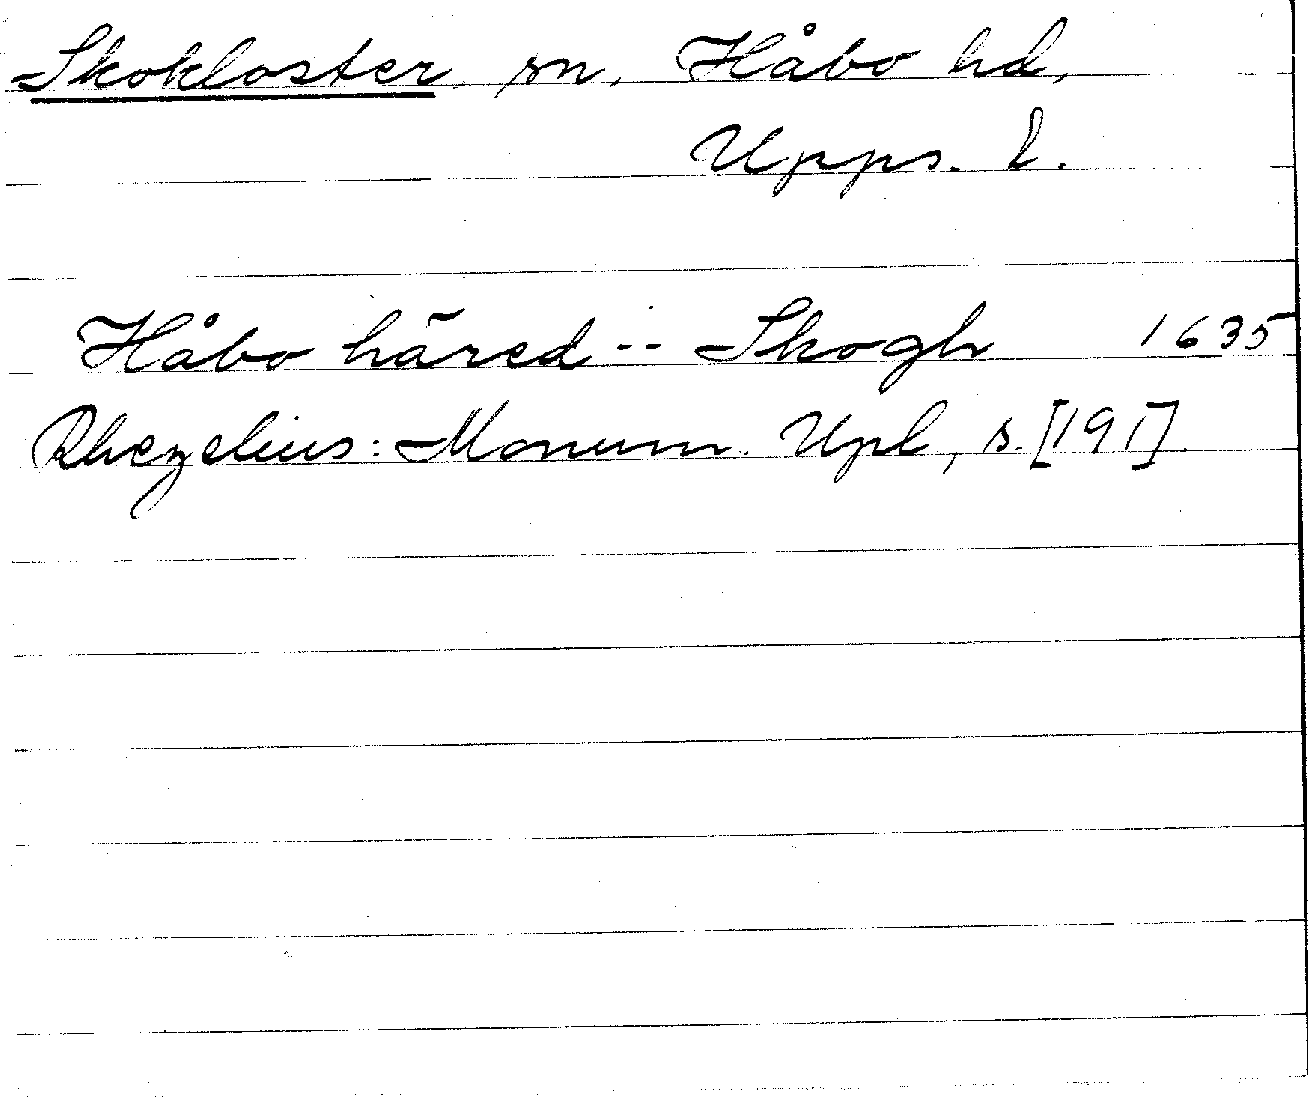 Skokloster sn, Håbo hd,
Upps. l.
Håbo häred -- Skogh 1635
Rhezelius: Monum. Upl, s. [191]